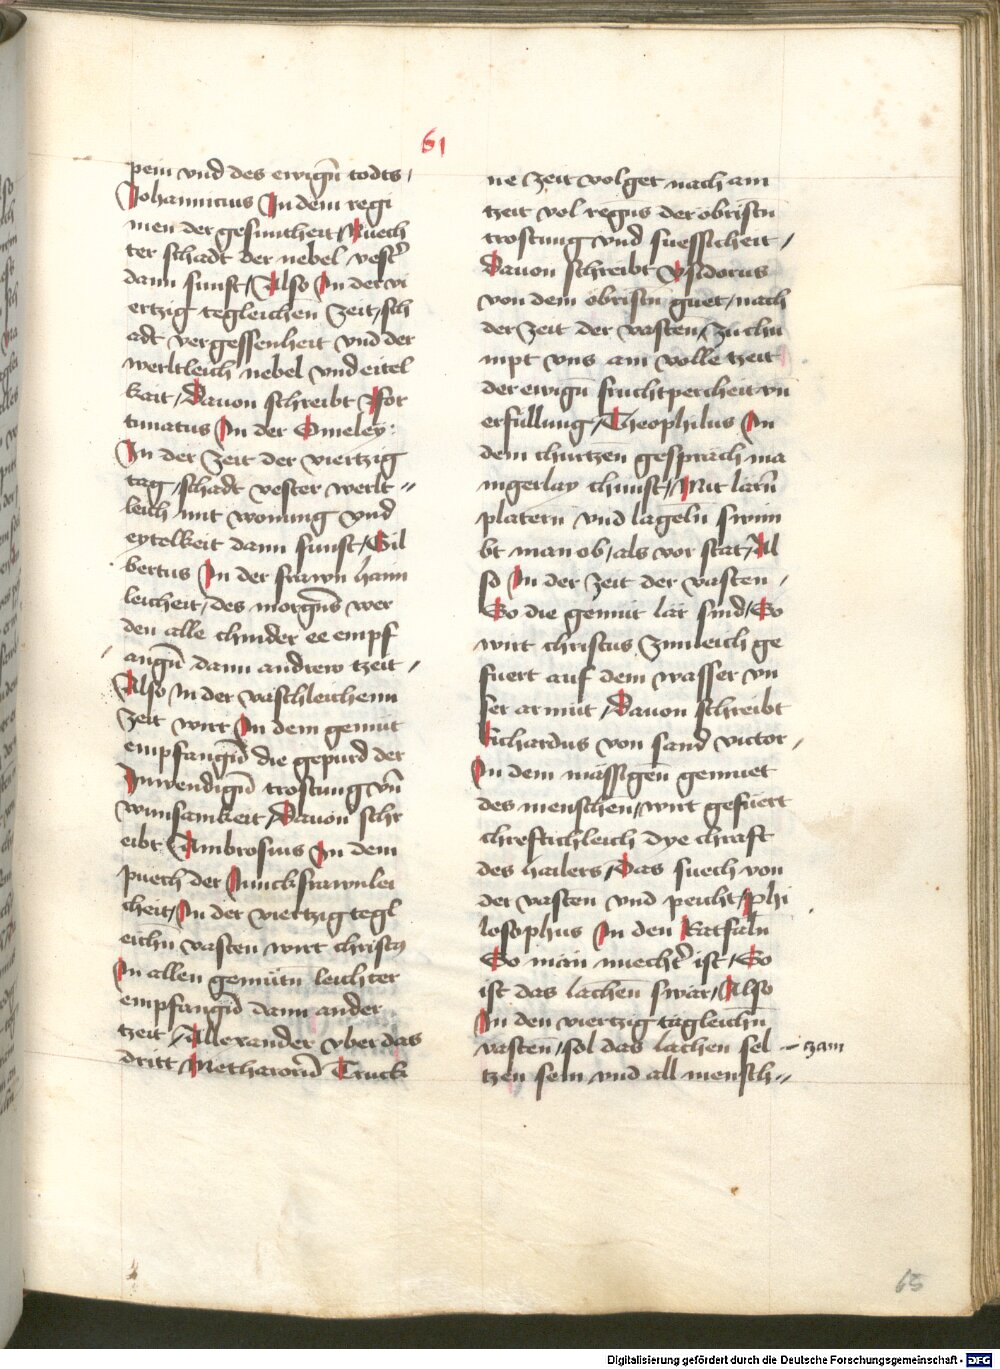 61
pein vnd des ewigñ todts /
Johannicius In dem regi
men der gesuntheit / Nuech
ter schadt der nebel vest̉
dann sunst / Also In der vi
ertzig tegleichen zeit / sch
adt vergessenheit vnd der
werltleich nebel vnd eitel
kait / Dauon schreibt For
tunatus In der Omeley :
In der zeit der viertzig
tag / schadt vester werlt //
leich mit wonung vnd
eytelkeit dann sunst / Gil
bertus In der frawn hain
leicheit / des morgñs wer
den alle chinder ee empf
angñ dann andrew tzeit /
Also in der vaschleichenn
zeit wirt In dem gemüt
empfangñd die gepurd der
Inwendigñ trostung vñ
wunsamkeit / Dauon schr
eibt Ambrosius In dem
puech der Junckfrawnlei
cheit / In der viertzig tegl
eichn̄ vasten wirt christus
In allen gemütn leichter
empfangñ dann ander
tzeit / Allexander vber das
dritt Metharorũ Truck
ne zeit volget nach am
tzeit vol regns der obristn
trostung vnd suessicheit /
Dauon schreibt Ysidorus
von dem obristn guet / nach
der zeit der vasten / zu chu
mpt vns am volle tzeit
der ewign̄ fruchtpercheit vn̄
erfullung / Theophilus In
dem churtzen gespräch ma
nigerlay chunst / Mit lärñ
platern vnd lageln swim
bt man ob / als vor stat / Al
so In der zeit der vasten /
So die gemüt lär sind / So
wirt christus zimleich ge
fuert auf dem wasser vn
ser armüt / Dauon schreibt
Richardus von sand victor /
In dem mässigen gemuet
des menschen / wirt gefuert
chreftichleich dye chraft
des hailers / Das suech von
der vasten vnd peicht / Phi
losophus In den Ratsaln
So man nuecht̉ ist / So
ist das lachen swär / Also
In den viertzig tägleichn̄
vasten / sol das lachen sel – tzam
tzen sein vnd all mensch //
65
Digitalisierung gefördert durch die Deutsche Forschungsgemeinschaft - DFG